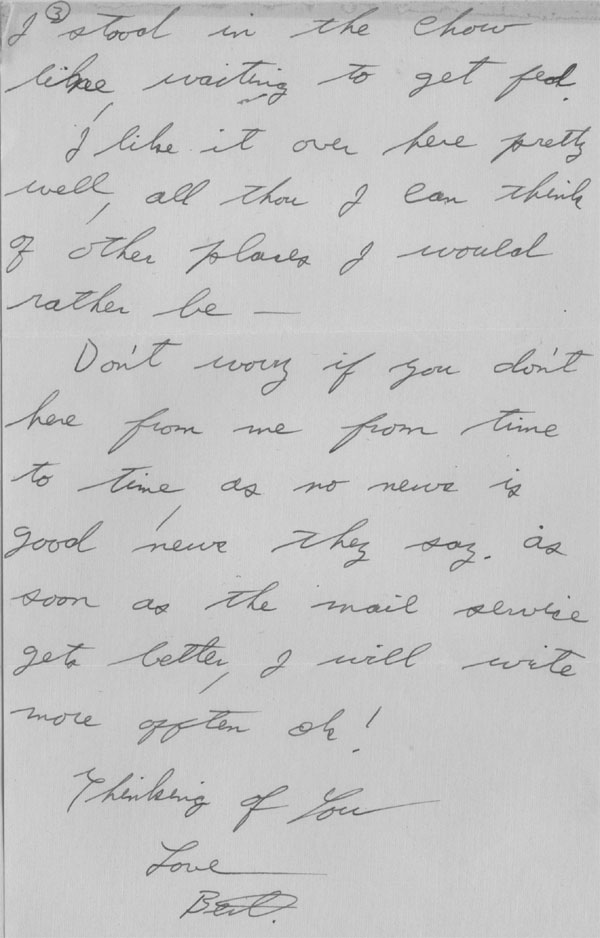 ③
I stood in the chow
line, waiting to get fed.
I like it over here pretty
well, all thou I can think
of other places I would
rather be —
Don't worry if you don't
here from me from time
to time, as no news is
good news they say. as
soon as the mail service
gets better, I will write
more offten ok!
Thinking of You
Love
Bert.